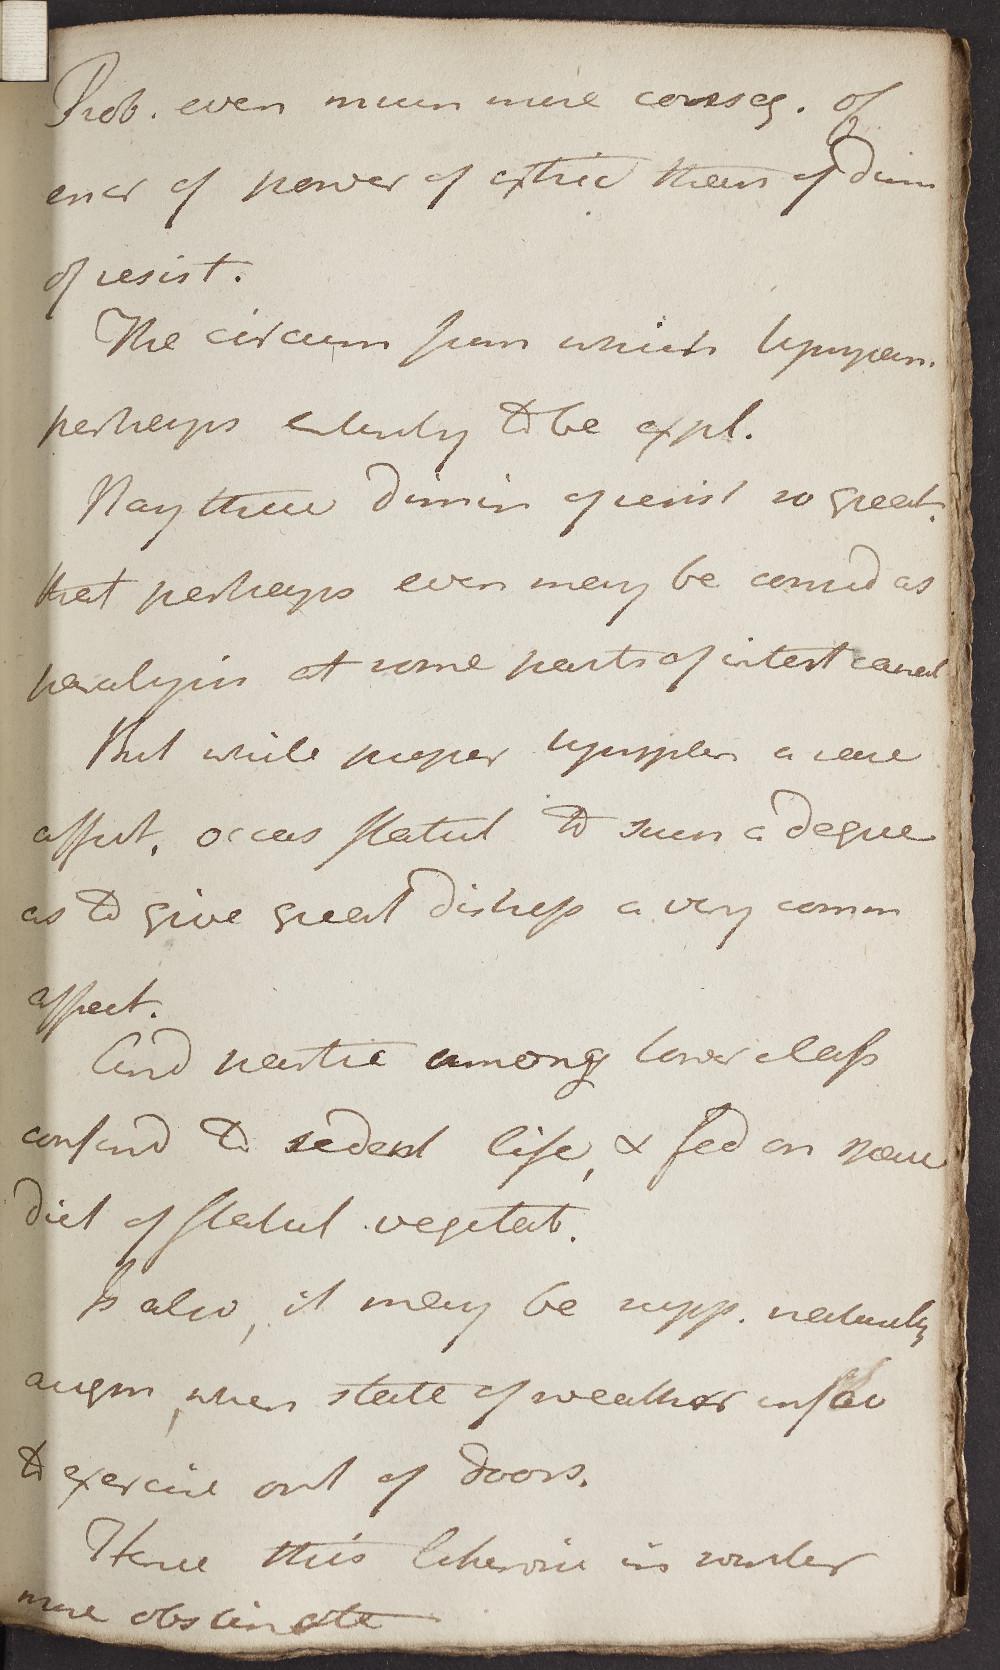 Prob. even much more conseq. of
encr of power of extric than of dimin
of resist.
The circum from which tympan.
perhaps entirely to be expl.
Nay these dimin of resist so great.
that perhaps even may be consid as
paralysis at some parts of intest canal
But while proper tympan a rare
affect, occas flatul to such a degree
as to give great distress a very comm
affect.
And partic among lower class
confind to sedent life, & fed on
diet of flatul vegetab.
Is also, it may be supp. naturaly
augm, when state of weather unfav
to exercise out of doors.
Hence this likewise in winter
more obstinate